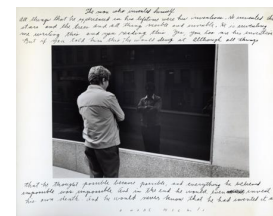 The man who invented himself.
All things that he experienced in his lifetime were his inventions. He invented the
stars and the trees and all things visible and invisible. He is inventing
me writing this and you reading this. Yes, you too are his invention.
But if you told him this he would deny it although all things
that he thought possible became possible, and everything he believed
impossible was impossible. And in the end he would even invent
his own death but he would never know that he had invented it.